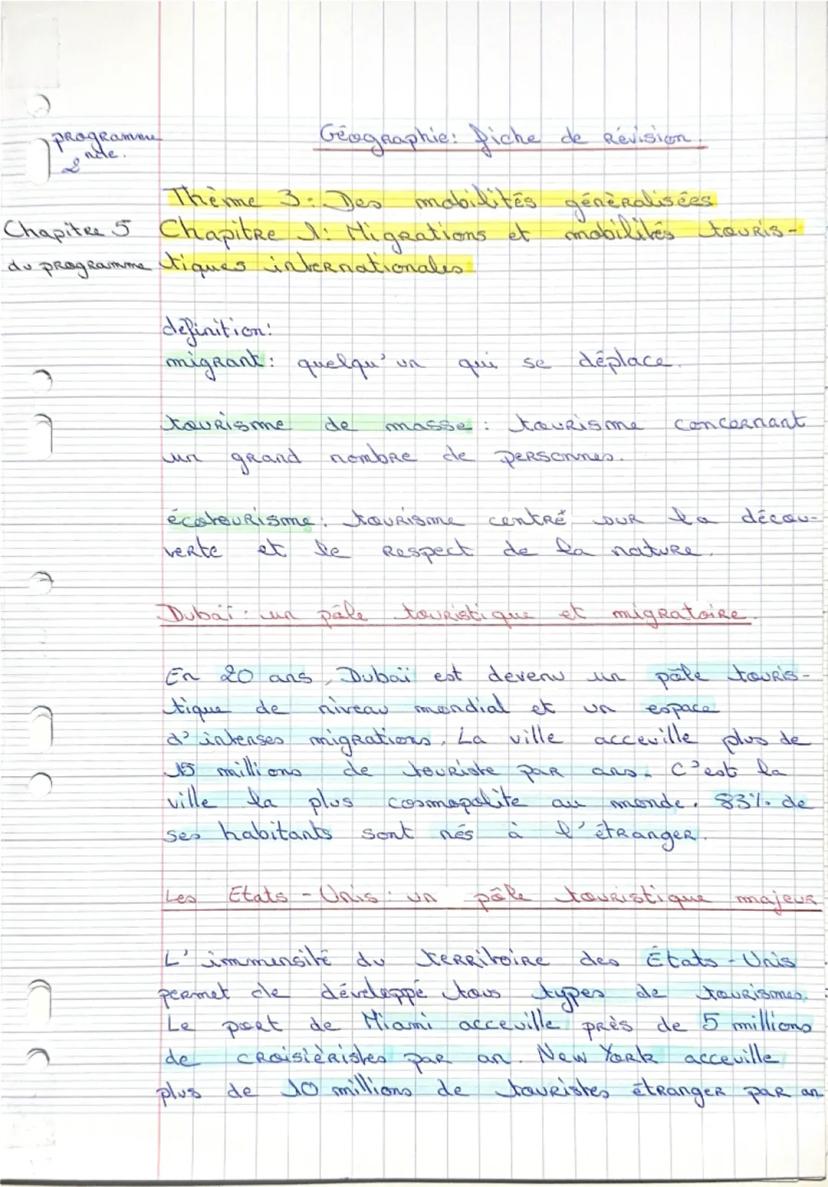 Géographie: fiche de Révision.
programme
2nde.
Thème 3: Des mobilités généralisées
Chapitre 5
du programme
Chapitre 1: Migrations et mobilités touris-
tiques internationales
définition:
migrant: quelqu'un qui se déplace.
tourisme de masse: tourisme concernant
un grand nombre de personnes.
écotourisme: tourisme centré sur la décou-
verte et le respect de la nature.
Dubaï: un pôle touristique et migratoire.
En 20 ans, Dubaï est devenu un pôle touris-
tique de niveau mondial et un espace
d'intenses migrations. La ville acceuille plus de
15 millions de touriste par ans. C'est la
ville la plus cosmopolite au monde. 83% de
ses habitants sont nés à l'étranger.
Les Etats-Unis: un pôle touristique majeur
L'immensité du territoire des États-Unis
permet de développé tous types de tourismes.
Le port de Miami acceuille près de 5 millions
de croisièristes par an. New York acceuille
plus de 10 millions de touristes étranger par an